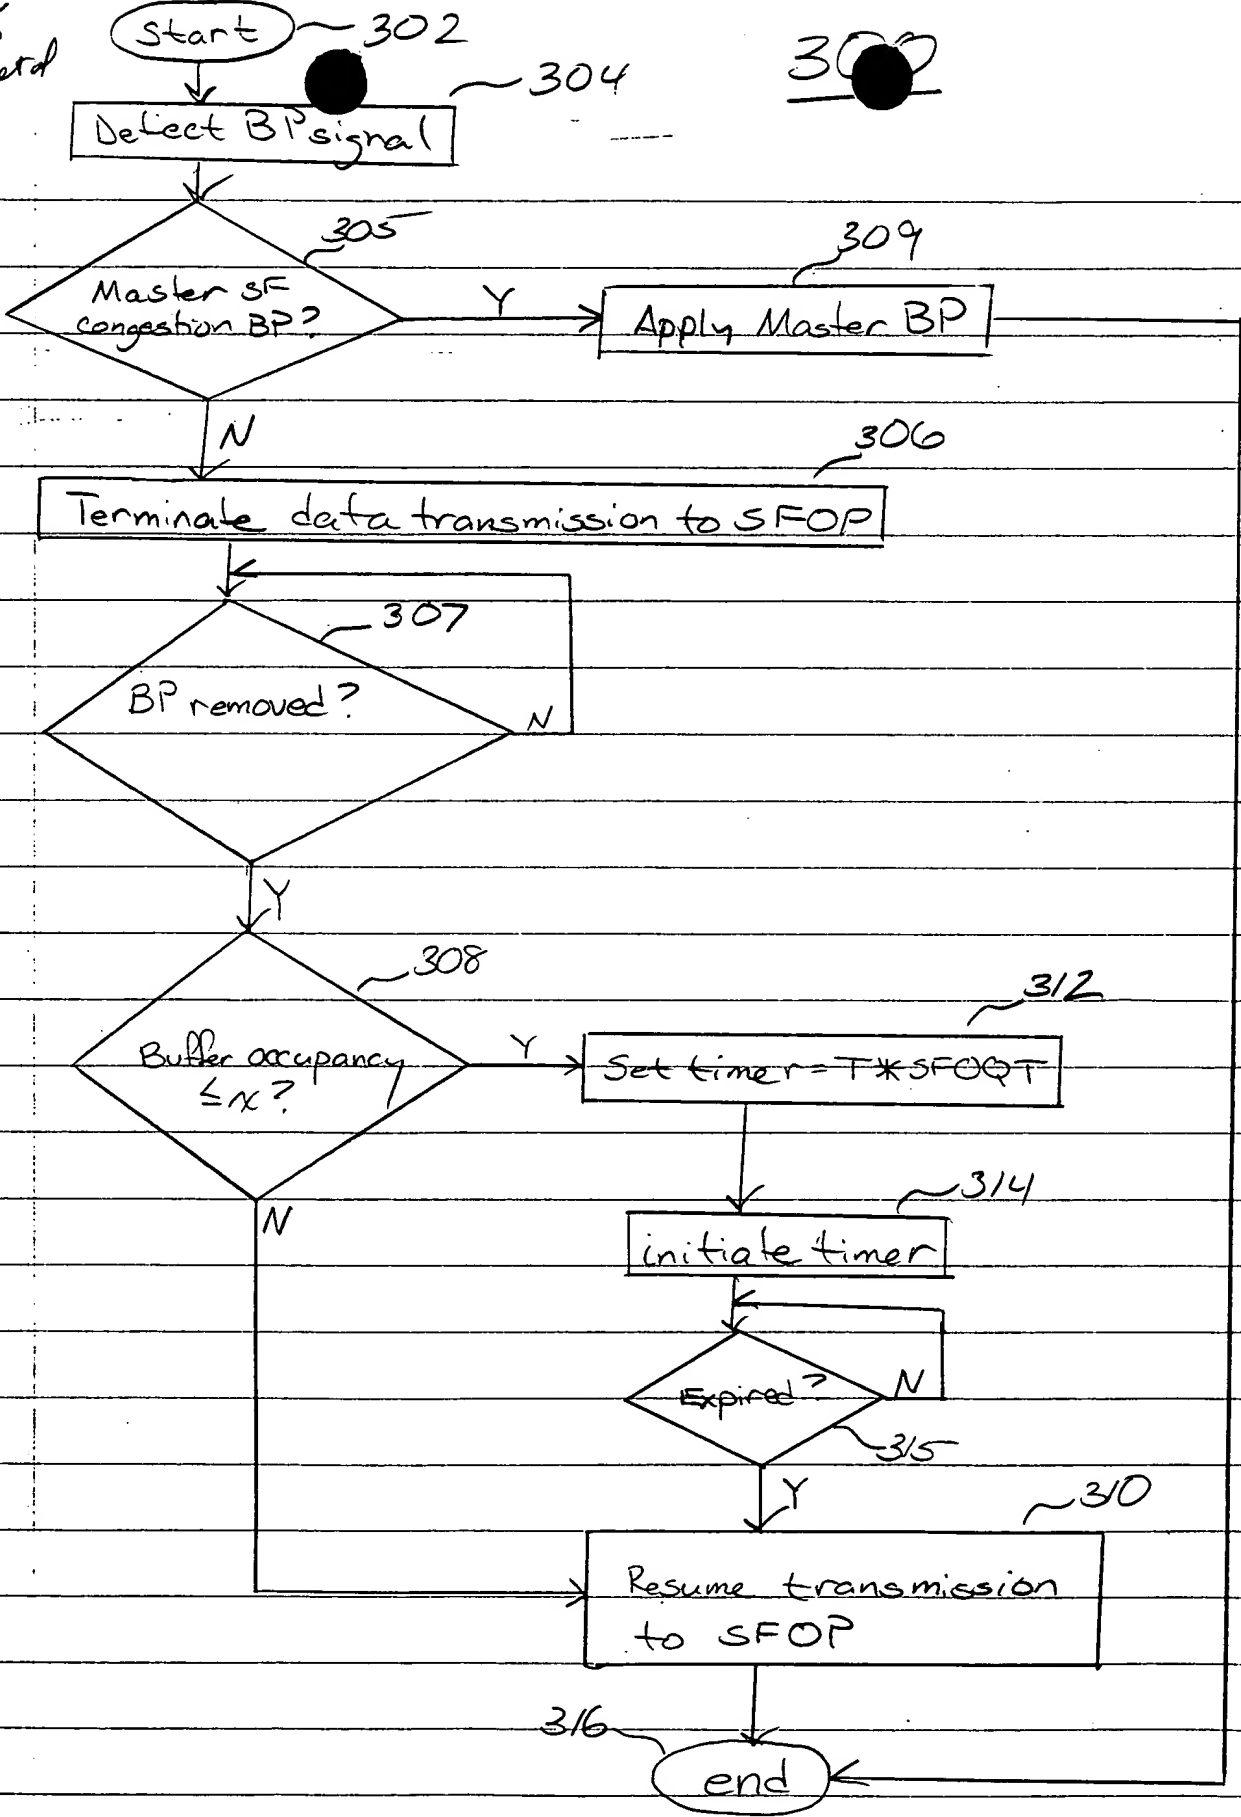 start
302
300
304
Detect BP signal
305
309
Master SF
congestion BP?
Y
Apply Master BP
N
306
Terminate data transmission to SFOP
307
BP removed?
N
Y
308
312
Buffer occupancy
≤ x?
Y
Set timer = T*SFOQT
314
N
initiate timer
Expired?
N
315
Y
310
Resume transmission
to SFOP
316
end